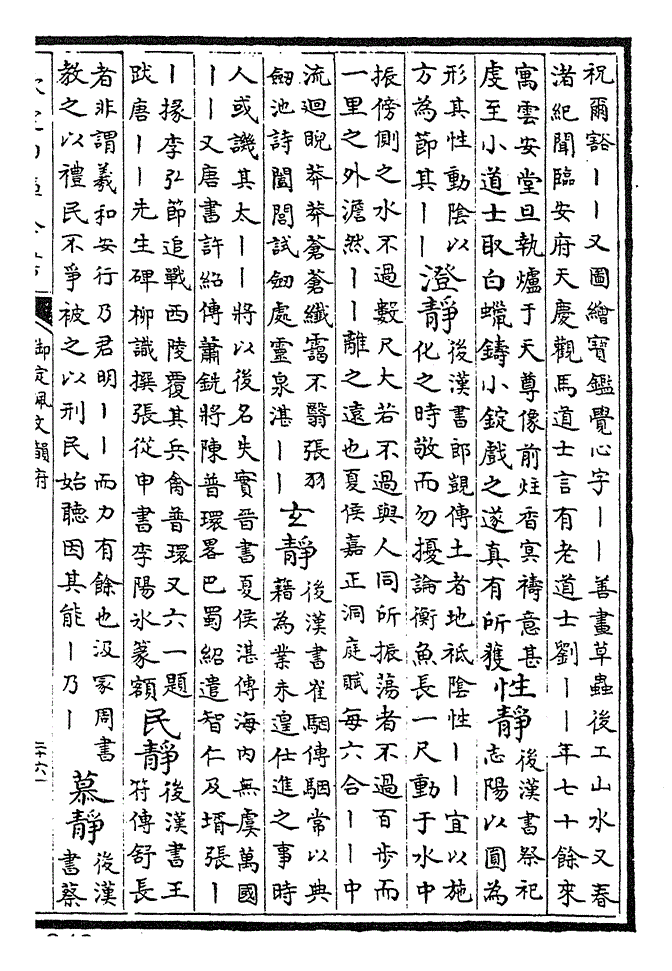 祝爾豁丨丨又圖繪寶鑑覺心字丨丨善畫草蟲後工山水又春
渚紀聞臨安府天慶觀馬道士言有老道士劉丨丨年七十餘來
寓雲安堂旦執爐于天尊像前炷香冥禱意甚
虔至小道士取白蠟鑄小錠戲之遂真有所獲
性靜
後漢書祭祀
志陽以圓為
形其性動陰以
方為節其丨丨
澄靜
後漢書郎顗傳土者地祗陰性丨丨宜以施
化之時敬而勿擾論衡魚長一尺動于水中
振傍側之水不過數尺大若不過與人同所振蕩者不過百步而
一里之外澹然丨丨離之遠也夏侯嘉正洞庭賦每六合丨丨中
流迴睨莽莽蒼蒼纖靄不翳張羽
劒池詩闔閭試劒處靈泉湛丨丨
玄靜
後漢書崔駰傳駰常以典
籍為業未遑仕進之事時
人或譏其太丨丨將以後名失實晉書夏侯湛傳海內無虞萬國
丨丨又唐書許紹傳蕭銑將陳普環畧巴蜀紹遣智仁及壻張丨
丨掾李弘節追戰西陵覆其兵禽普環又六一題
跋唐丨丨先生碑柳識撰張從申書李陽氷篆額
民靜
後漢書王
符傳舒長
者非謂羲和安行乃君明丨丨而力有餘也汲冢周書
教之以禮民不爭被之以刑民始聽因其能丨乃丨
慕靜
後漢
書蔡
御定佩文韻府
二十六